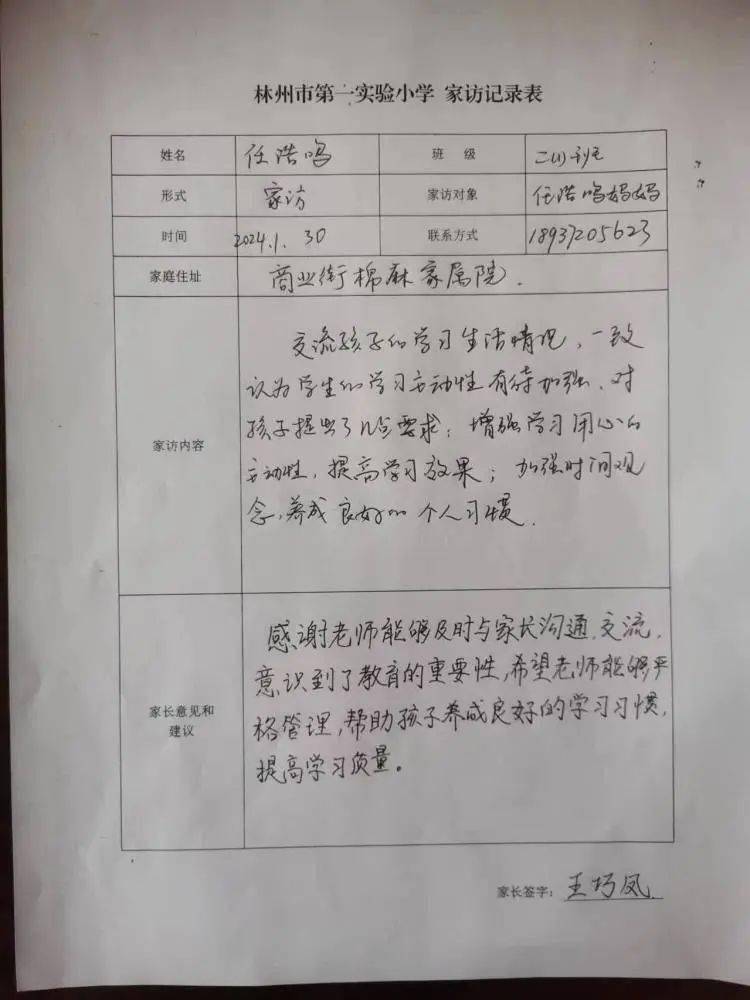 林州市第一实验小学 家访记录表
姓名 任浩鸣 班 级 二(1)班
形式 家访 家访对象 任浩鸣妈妈
时间 2024.1.30 联系方式 18937205623
家庭住址 商业街棉麻家属院.
交流孩子的学习生活情况,一致
认为学生的学习主动性有待加强、对
家访内容 孩子提出了几点要求:增强学习用心的
主动性,提高学习效果;加强时间观
念,养成良好的个人习惯.
感谢老师能够及时与家长沟通、交流,
意识到了教育的重要性,希望老师能够严
家长意见和
建议
格管理,帮助孩子养成良好的学习习惯,
提高学习质量。
家长签字:王巧凤